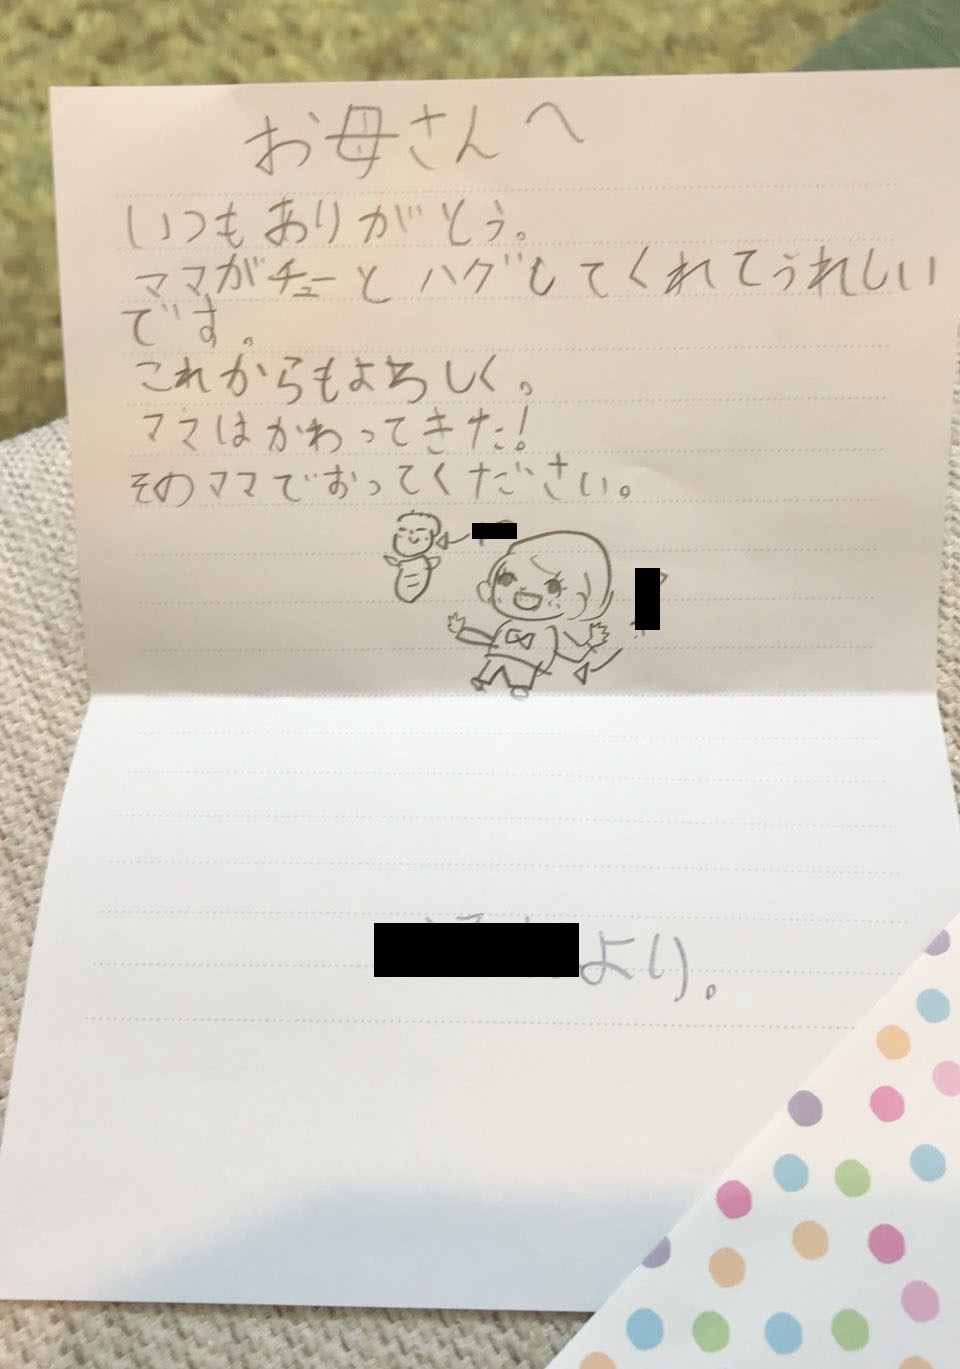 お母さんへ
いつもありがとう。
ママがチューとハグしてくれてうれしい
です。
これからもよろしく。
ママはかわってきた!
そのママでおってください。
より。